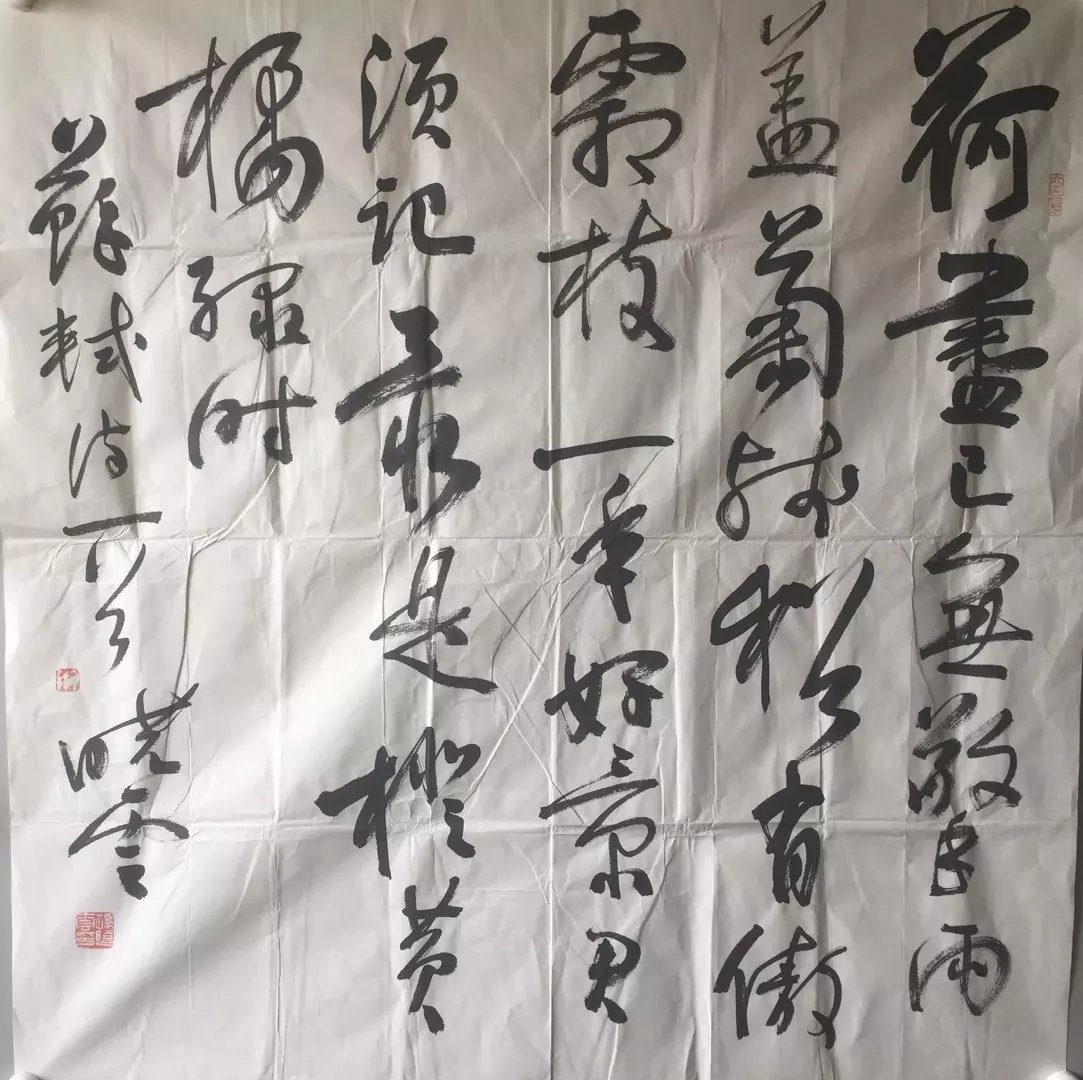 荷盡已無擎雨
盖菊残猶有傲
霜枝一年好景君
须记最是橙黄
橘绿时
蘇轼诗一首 晓雲